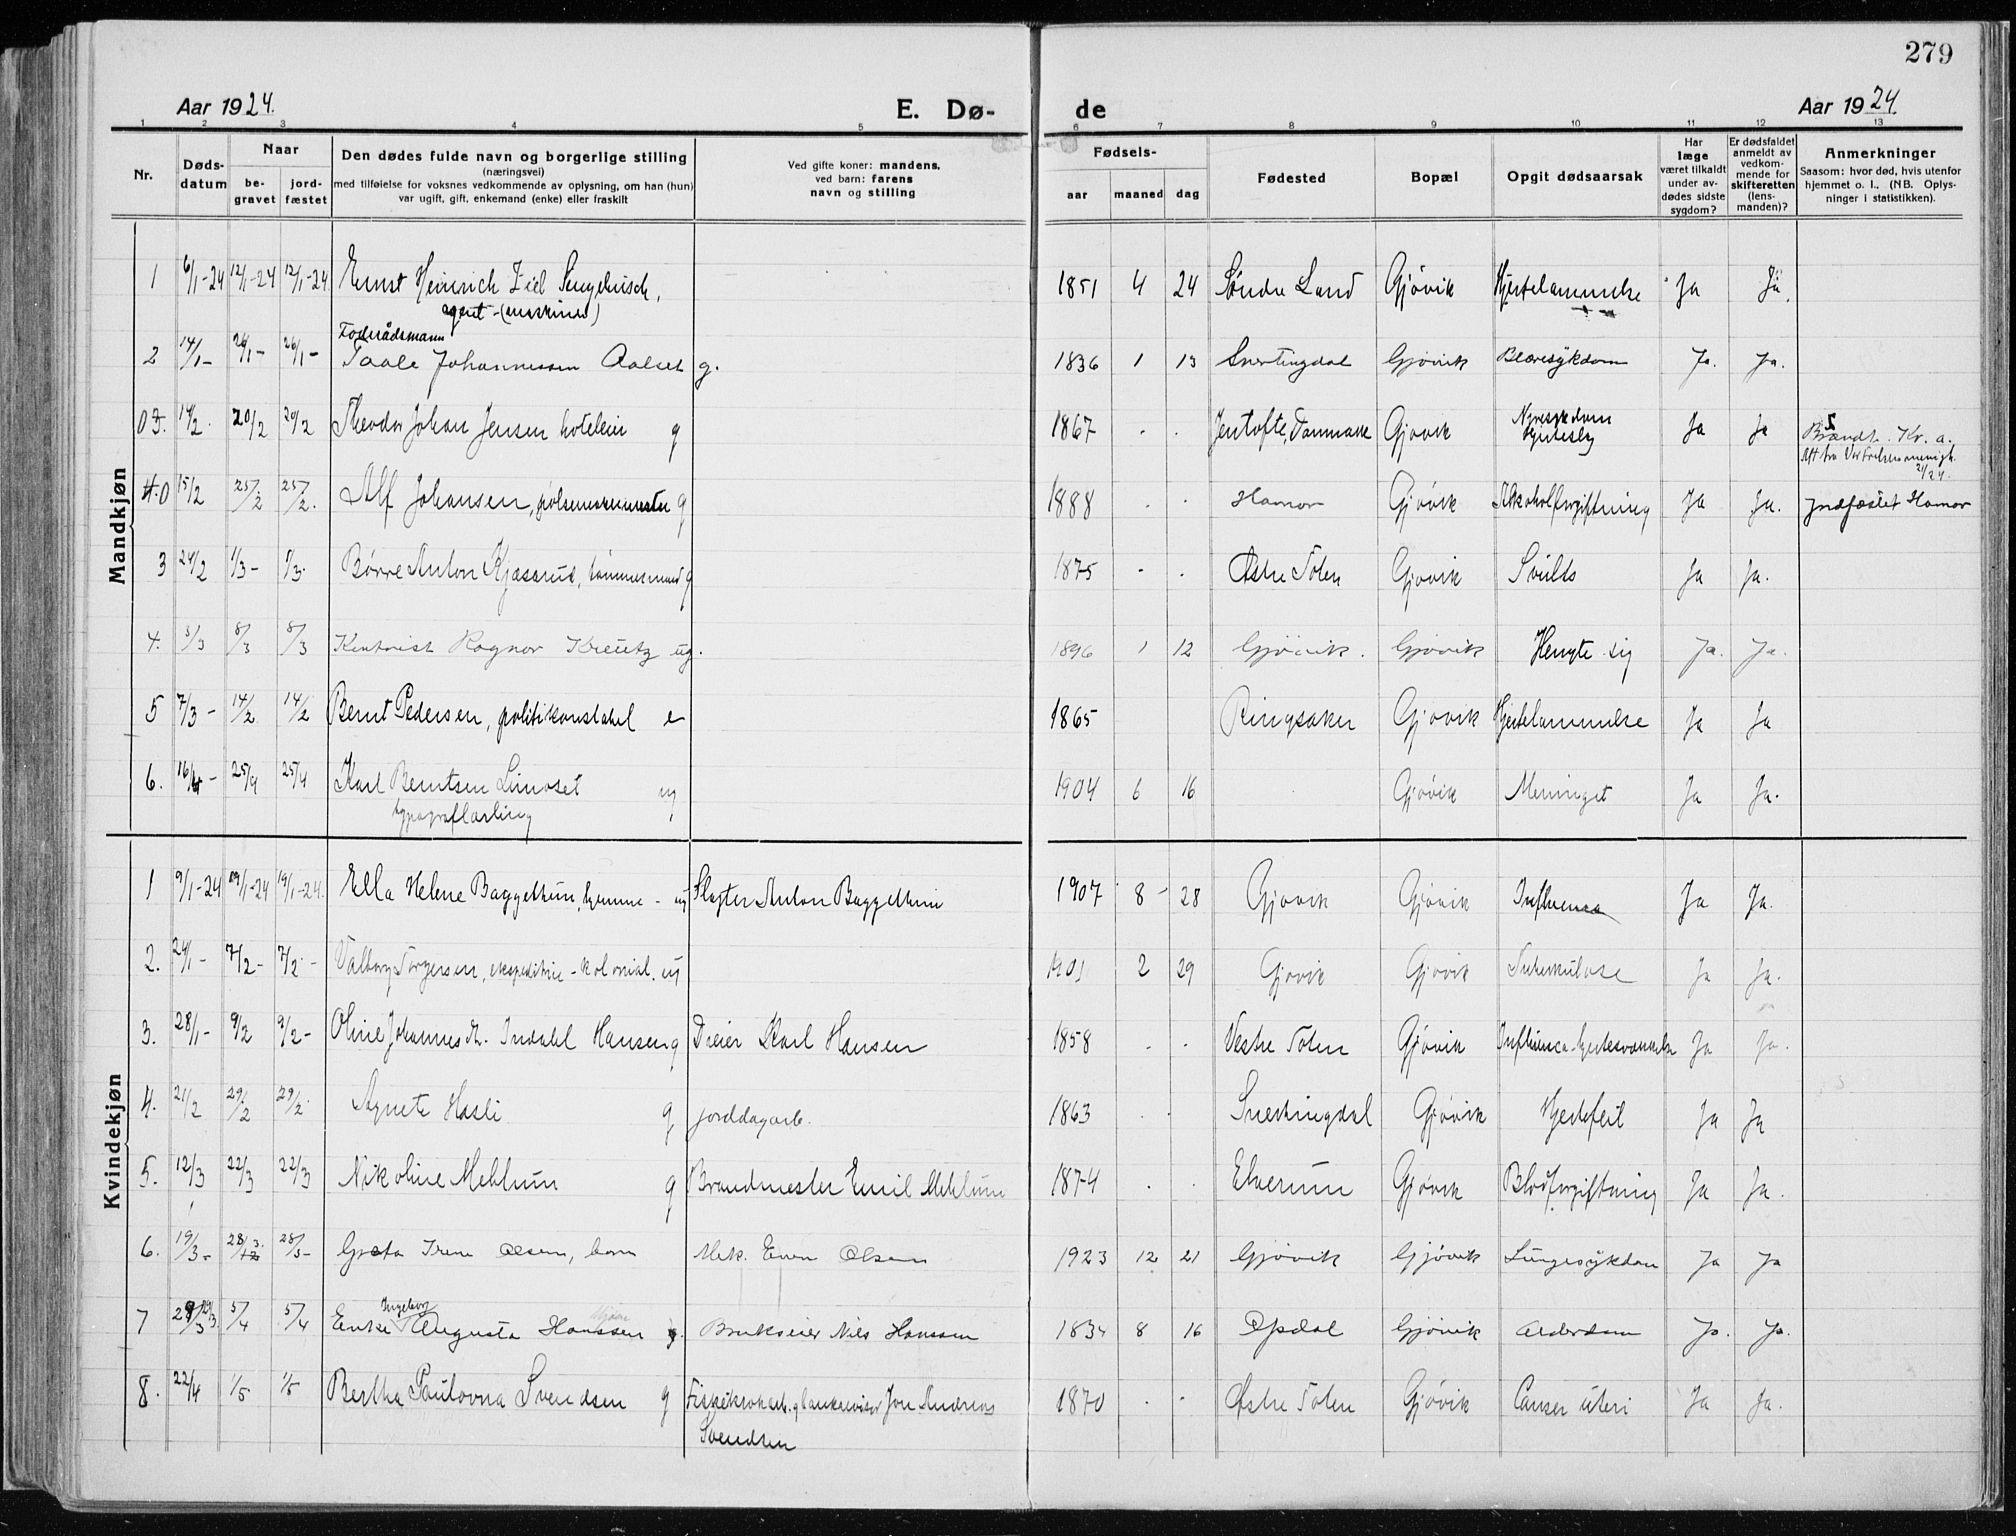 279
Aar 1924. E. Dø- de Aar 1924.
1 2 3 4 5 6 7 8 9 10 11 12 13
Nr. Døds-datum Naar be-gravet jord-fæstet Den dødes fulde navn og borgerlige stilling (næringsvei) med tilføielse for voksnes vedkommende av oplysning, om han (hun) var ugift, gift, enkemand (enke) eller fraskilt Ved gifte koner: mandens, ved barn: farens navn og stilling Fødsels- aar maaned dag Fødested Bopæl Opgit dødsaarsak Har læge været tilkaldt under av-dødes sidste sygdom? Er dødsfaldet anmeldt av vedkom-mende for skifteretten (lens-manden)? Anmerkninger Saasom: hvor død, hvis utenfor hjemmet o. l., (NB. Oplys-ninger i statistikken).
Mandkjøn
1 6/1-24 12/1-24 12/1-24 Ernst Heinrich Ziel Sengebusch, 1851 4 24 Søndre Land Gjøvik Hjertelammelse Ja Ja.
agent-(maskiner)
Foderådsmann
2 14/1- 26/1- 26/1- Paale Johannessen Aalset g. 1836 1 13 Snertingdal Gjøvik Blæresykdom Ja. Ja.
14/2. 20/2 20/2 Theodor Johan Jensen hoteleier g 1867 . . Jentofte, Danmark Gjøvik Nyresykdom Ja Ja Brændt. Kr. a.
21/24.
4.0 15/2 25/2 25/2. Alf Johansen, pølsemakermester g 1888 . Hamar Gjøvik Alkoholforgiftning Ja Ja. Jordfæstet Hamar
3 24/2 1/3- 1/3. Børre Anton Kjæsrud, tømmermand g 1875 . . Østre Toten Gjøvik Svulst Ja Ja.
4. 3/3 8/3 8/3 Kontorist Ragnar Kreutz ug. 1896 1 12 Gjøvik. Gjøvik Hengte sig Ja. Ja.
5 7/3- 14/2 14/2 Bernt Pedersen, politikonstabel e 1865 Ringsaker Gjøvik Hjertelammelse Ja Ja
6. 16/4- 25/4 25/4 Karl Berntsen Linset ug 1904 6 16 Gjøvik Meninget Ja Ja.
typograflærling
Kvindekjøn
1 9/1-24 19/1-24 19/1-24. Ella Helene Baggethun, hjemme - ug Slagter Anton Baggethun 1907 8- 28 Gjøvik Gjøvik Influensa Ja Ja.
2. 24/1- 7/2- 7/2- Valborg Torgersen, ekspeditrise - kolonial. ug 1901 2 29 Gjøvik Gjøvik Tuberkulose Ja Ja.
3. 28/1- 9/2 9/2- Oline Johannesdt. Indahl Hansen g Dreier Karl Hansen 1858 . . Vestre Toten Gjøvik Influensa - hjertesvækkelse Ja Ja.
4. 21/2 29/2 29/2. Agnete Hasli g jorddagarb. 1863 . . Snertingdal Gjøvik Hjertefeil Ja Ja
5. 12/3 22/3 22/3 Nikoline Mehlum g Brandmester Emil Mehlum 1874 . . Elverum Gjøvik Blodforgiftning Ja Ja.
6. 19/3- 28/3. 28/3- Gjøta Irene Olsen, barn Mek. Even Olsen 1923 12 21 Gjøvik Gjøvik Lungesykdom Ja Ja
Ingeborg
7 29/3 5/4 5/4 Enke Augusta Hanssen Bruksæier Nils Hanssen 1834 8 16 Opdal Gjøvik Alderdom Ja. Ja.
8. 22/4 1/5 1/5 Bertha Paulovna Svendsen g Fiskeksekark. g bankrevisor Jon Andreas 1870 . . Østre Toten Gjøvik Canser uteri Ja Ja.
Svendsen